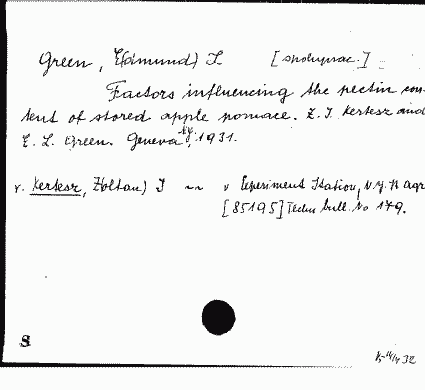 Green, E(dmund) L [spoluprac.]
Factors influencing the pectin con-
tent of stored apple pomace. Z. I. Kertesz and
E. L. Green. Geneva N.Y., 1931.
v. Kertesz, Zoltan) I v Experiment Station, N.Y. Agr
[85195] Techn bull. No 179.
S
32